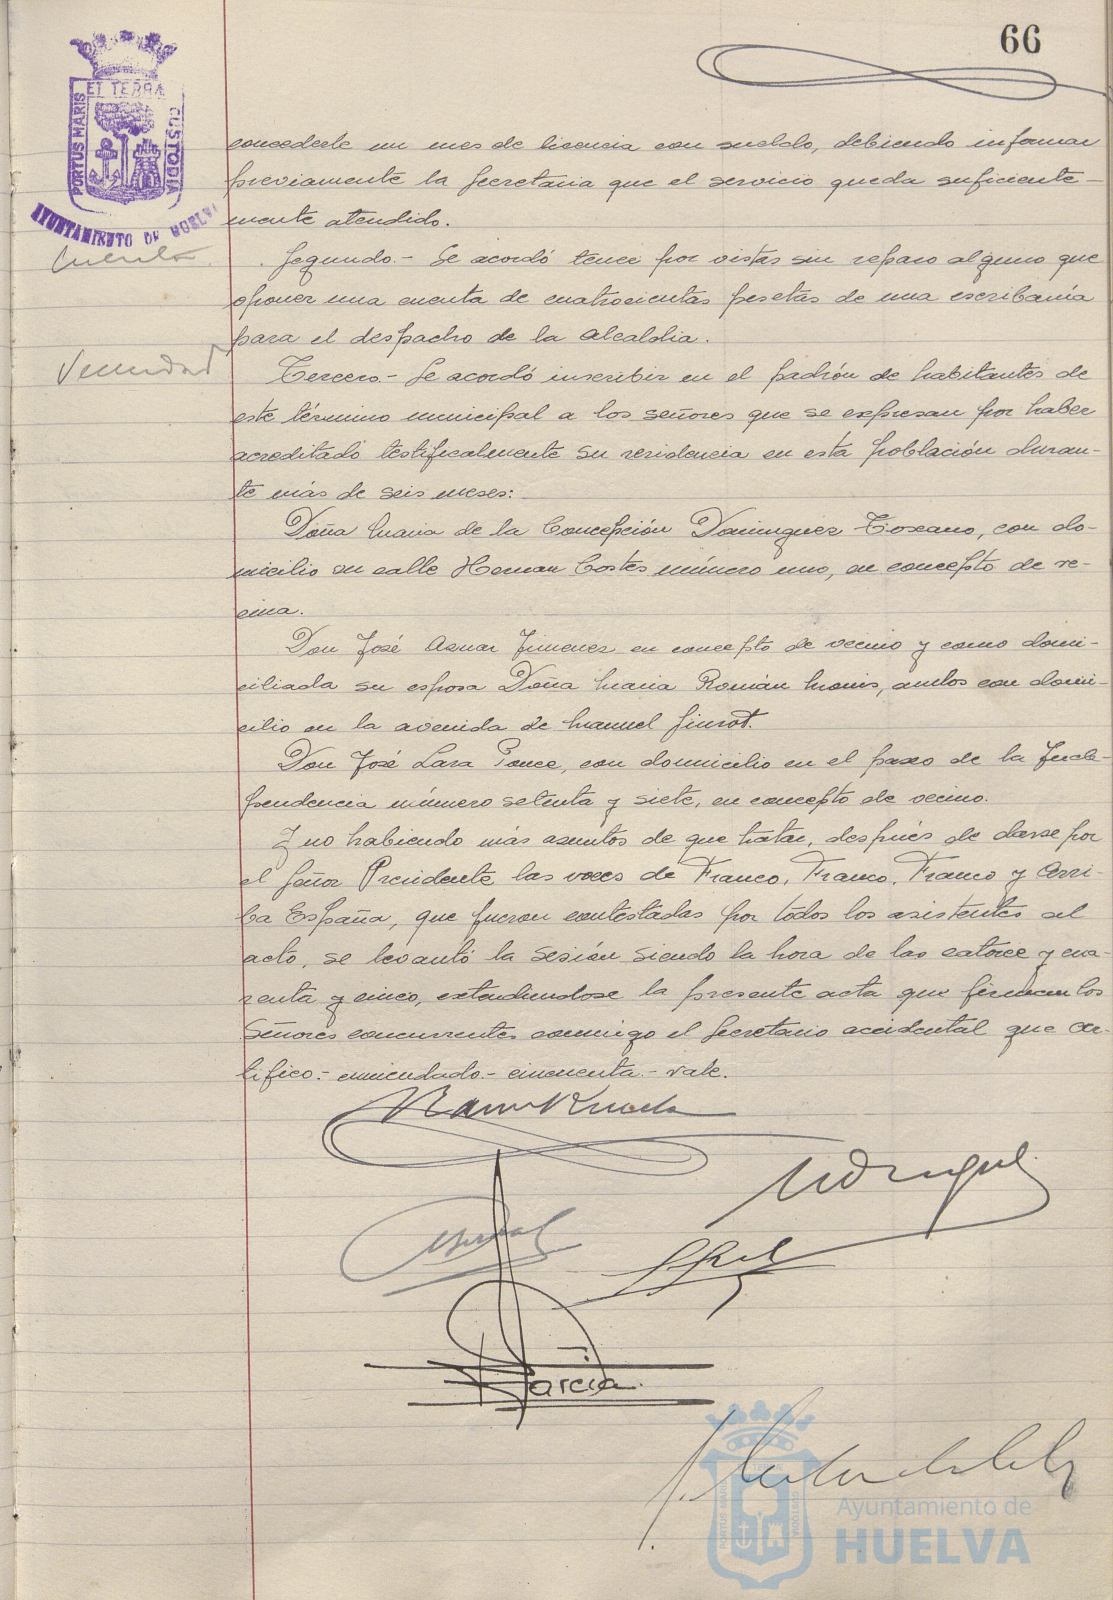 66
PORTUS MARIS ET TERRA CUSTODIA
AYUNTAMIENTO DE HUELVA
concederle un mes de licencia con sueldo, debiendo informar
previamente la Secretaria que el servicio queda suficiente-
mente atendido.
Cuenta
Segundo.- Se acordó tener por vistas sin reparo alguno que
oponer una cuenta de cuatrocientas pesetas de una escribanía
para el despacho de la Alcaldia.
Vecindad
Tercero.- Se acordó inscribir en el padrón de habitantes de
este término municipal a los señores que se expresan por haber
acreditado testificalmente su residencia en esta población duran-
te más de seis meses:
Doña Maria de la Concepción Dominguez Toscano, con do-
micilio en calle Hernan Cortes número uno, en concepto de ve-
cina.
Don José Asnar Jimenez en concepto de vecino y como domi-
ciliada su esposa Doña Maria Román Moris, ambos con domi-
cilio en la avenida de Manuel Siurot.
Don José Lara Ponce, con domicilio en el paseo de la Inde-
pendencia número setenta y siete, en concepto de vecino.
Y no habiendo más asuntos de que tratar, después de darse por
el Señor Presidente las voces de Franco, Franco, Franco y Arri-
ba España, que fueron contestadas por todos los asistentes al
acto, se levantó la sesión siendo la hora de las catorce y cua-
renta y cinco, extendiendose la presente acta que firman los
Señores concurrentes conmigo el Secretario accidental que cer-
tifico.- enmendado.- cincuenta.- vale.
Garcia
Ayuntamiento de
HUELVA